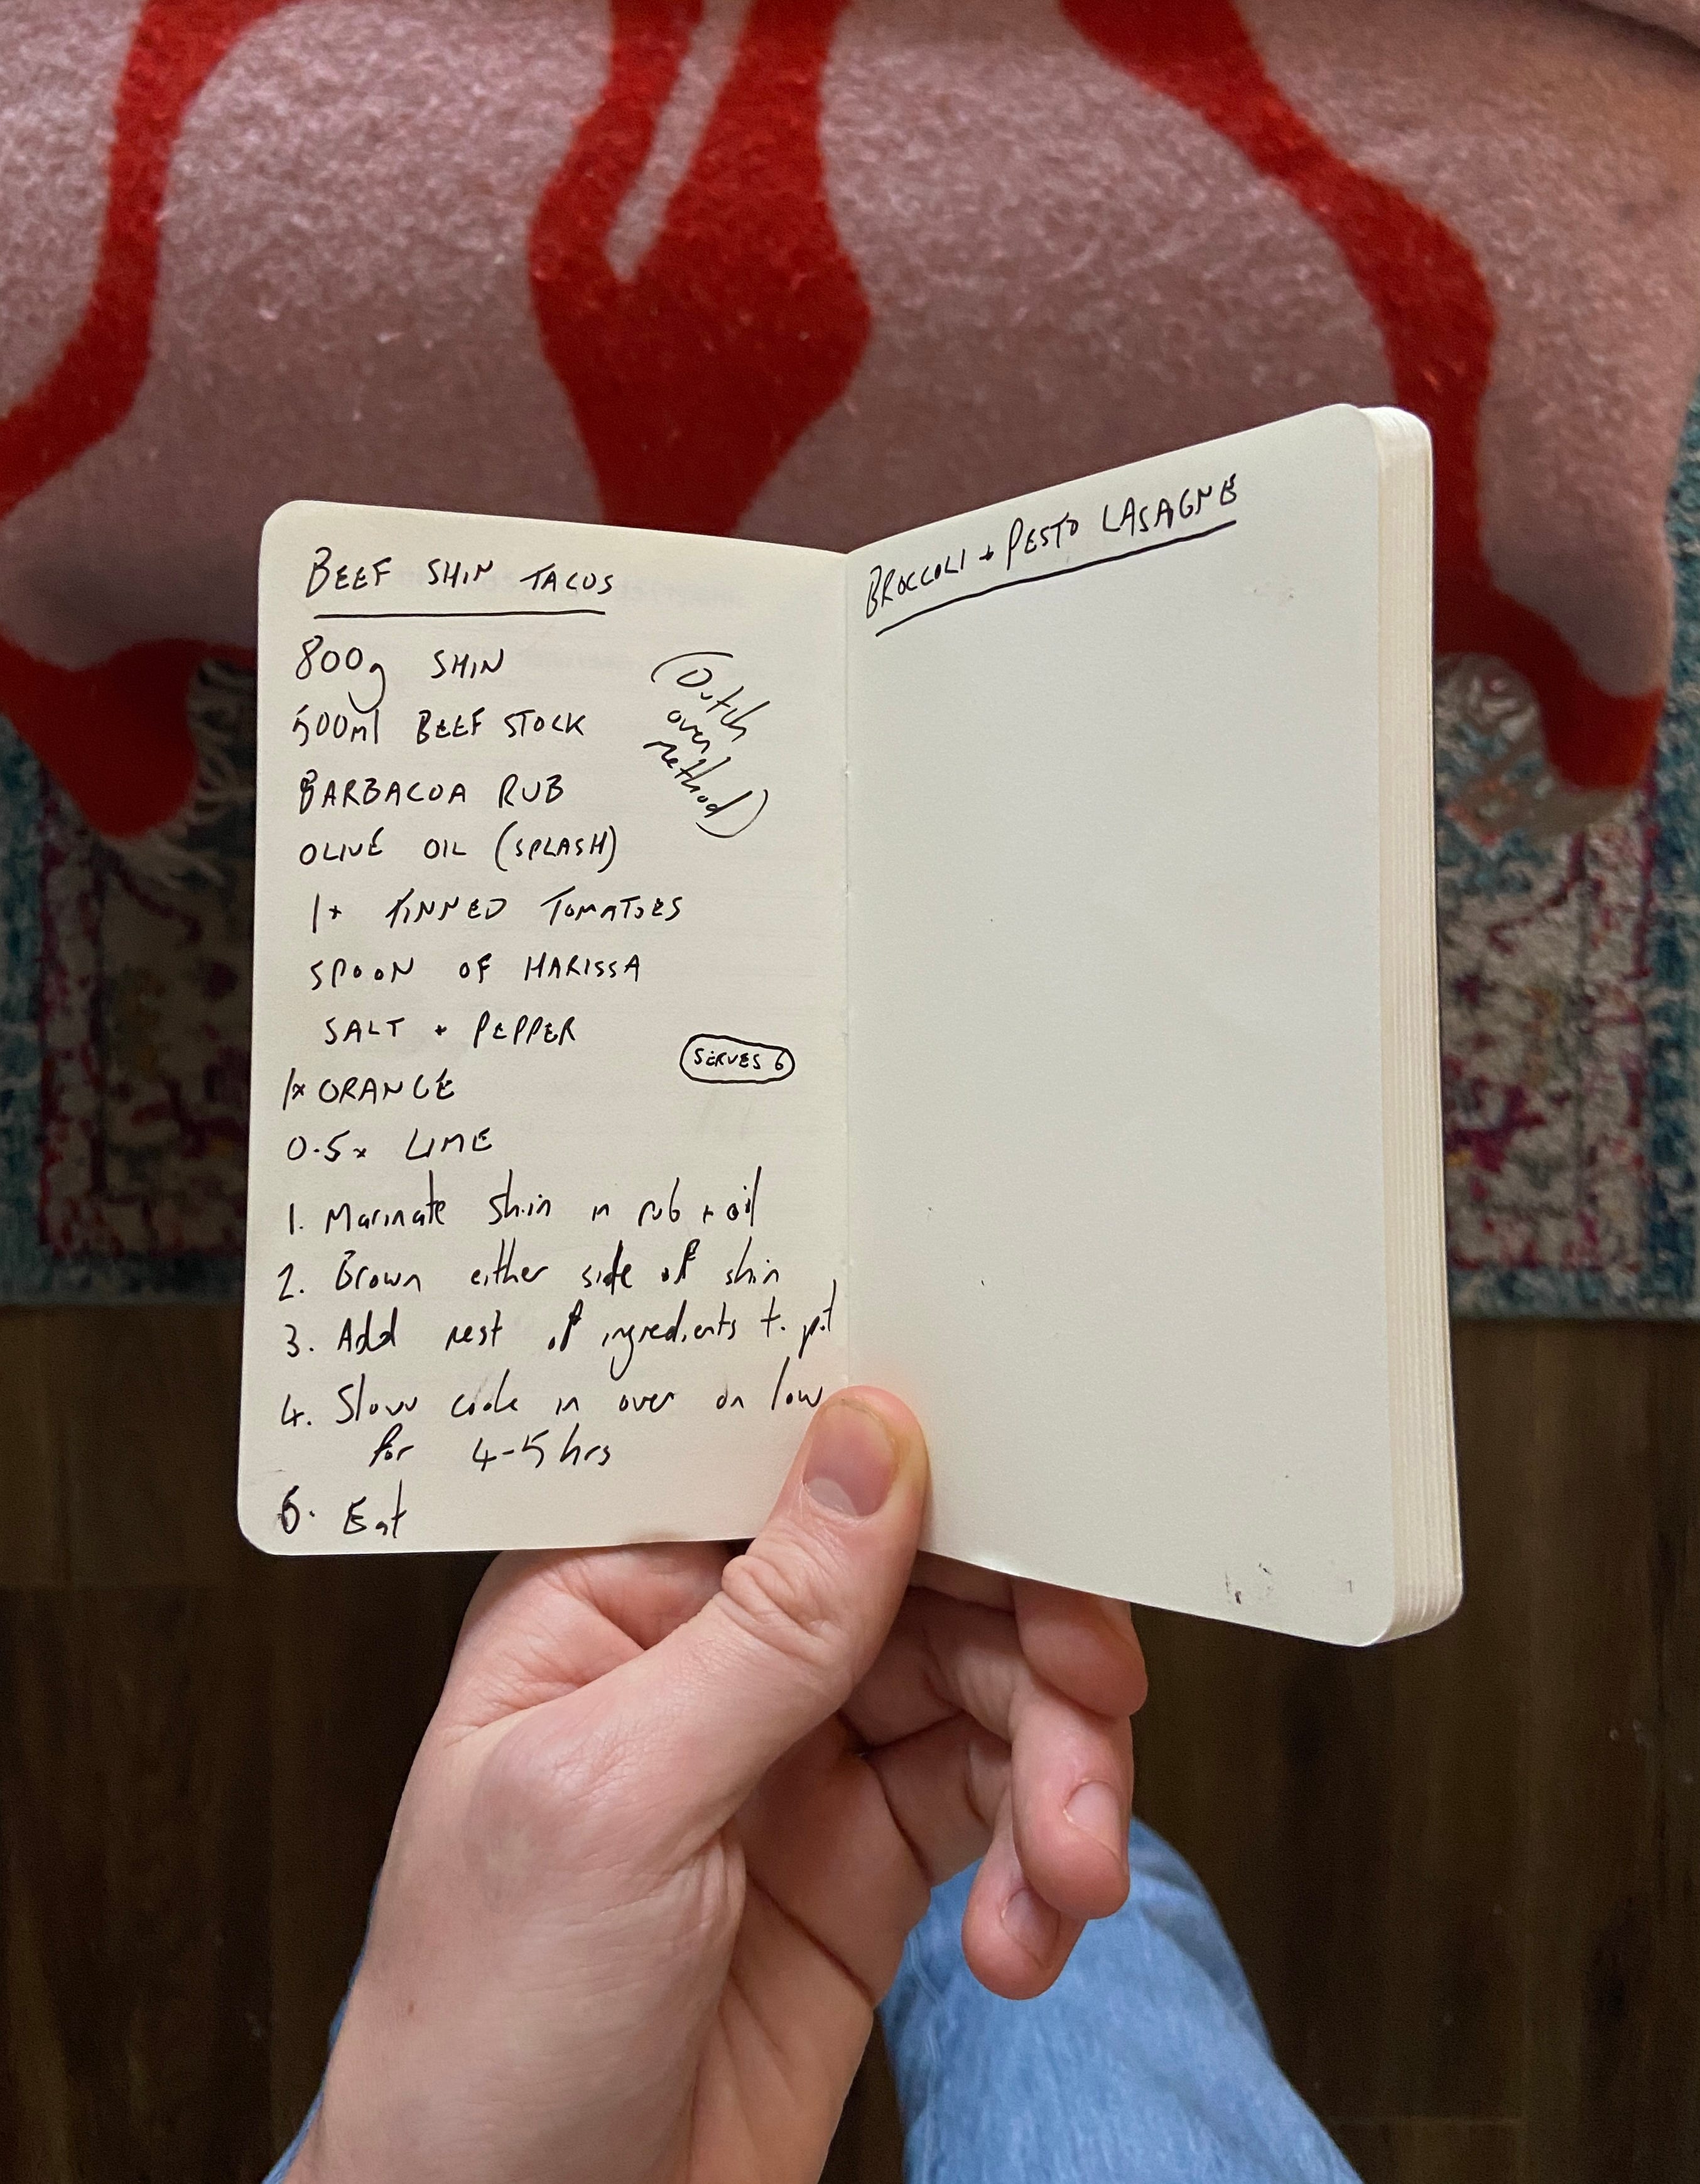 BEEF SHIN TACOS
800g SHIN
500ml BEEF STOCK
(Dutch
oven
method)
BARBACOA RUB
OLIVE OIL (SPLASH)
1x TINNED TOMATOES
SPOON OF HARISSA
SALT + PEPPER
SERVES 6
1x ORANGE
0.5x LIME
1. Marinate shin in rub + oil
2. Brown either side of shin
3. Add rest of ingredients to pot
4. Slow cook in oven on low
for 4-5 hrs
5. Eat
BROCCOLI + PESTO LASAGNE